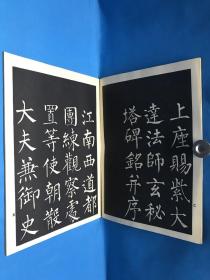 上座賜紫大
達法師玄秘
塔碑銘并序
江南西道都
團練觀察處
置等使朝散
大夫兼御史